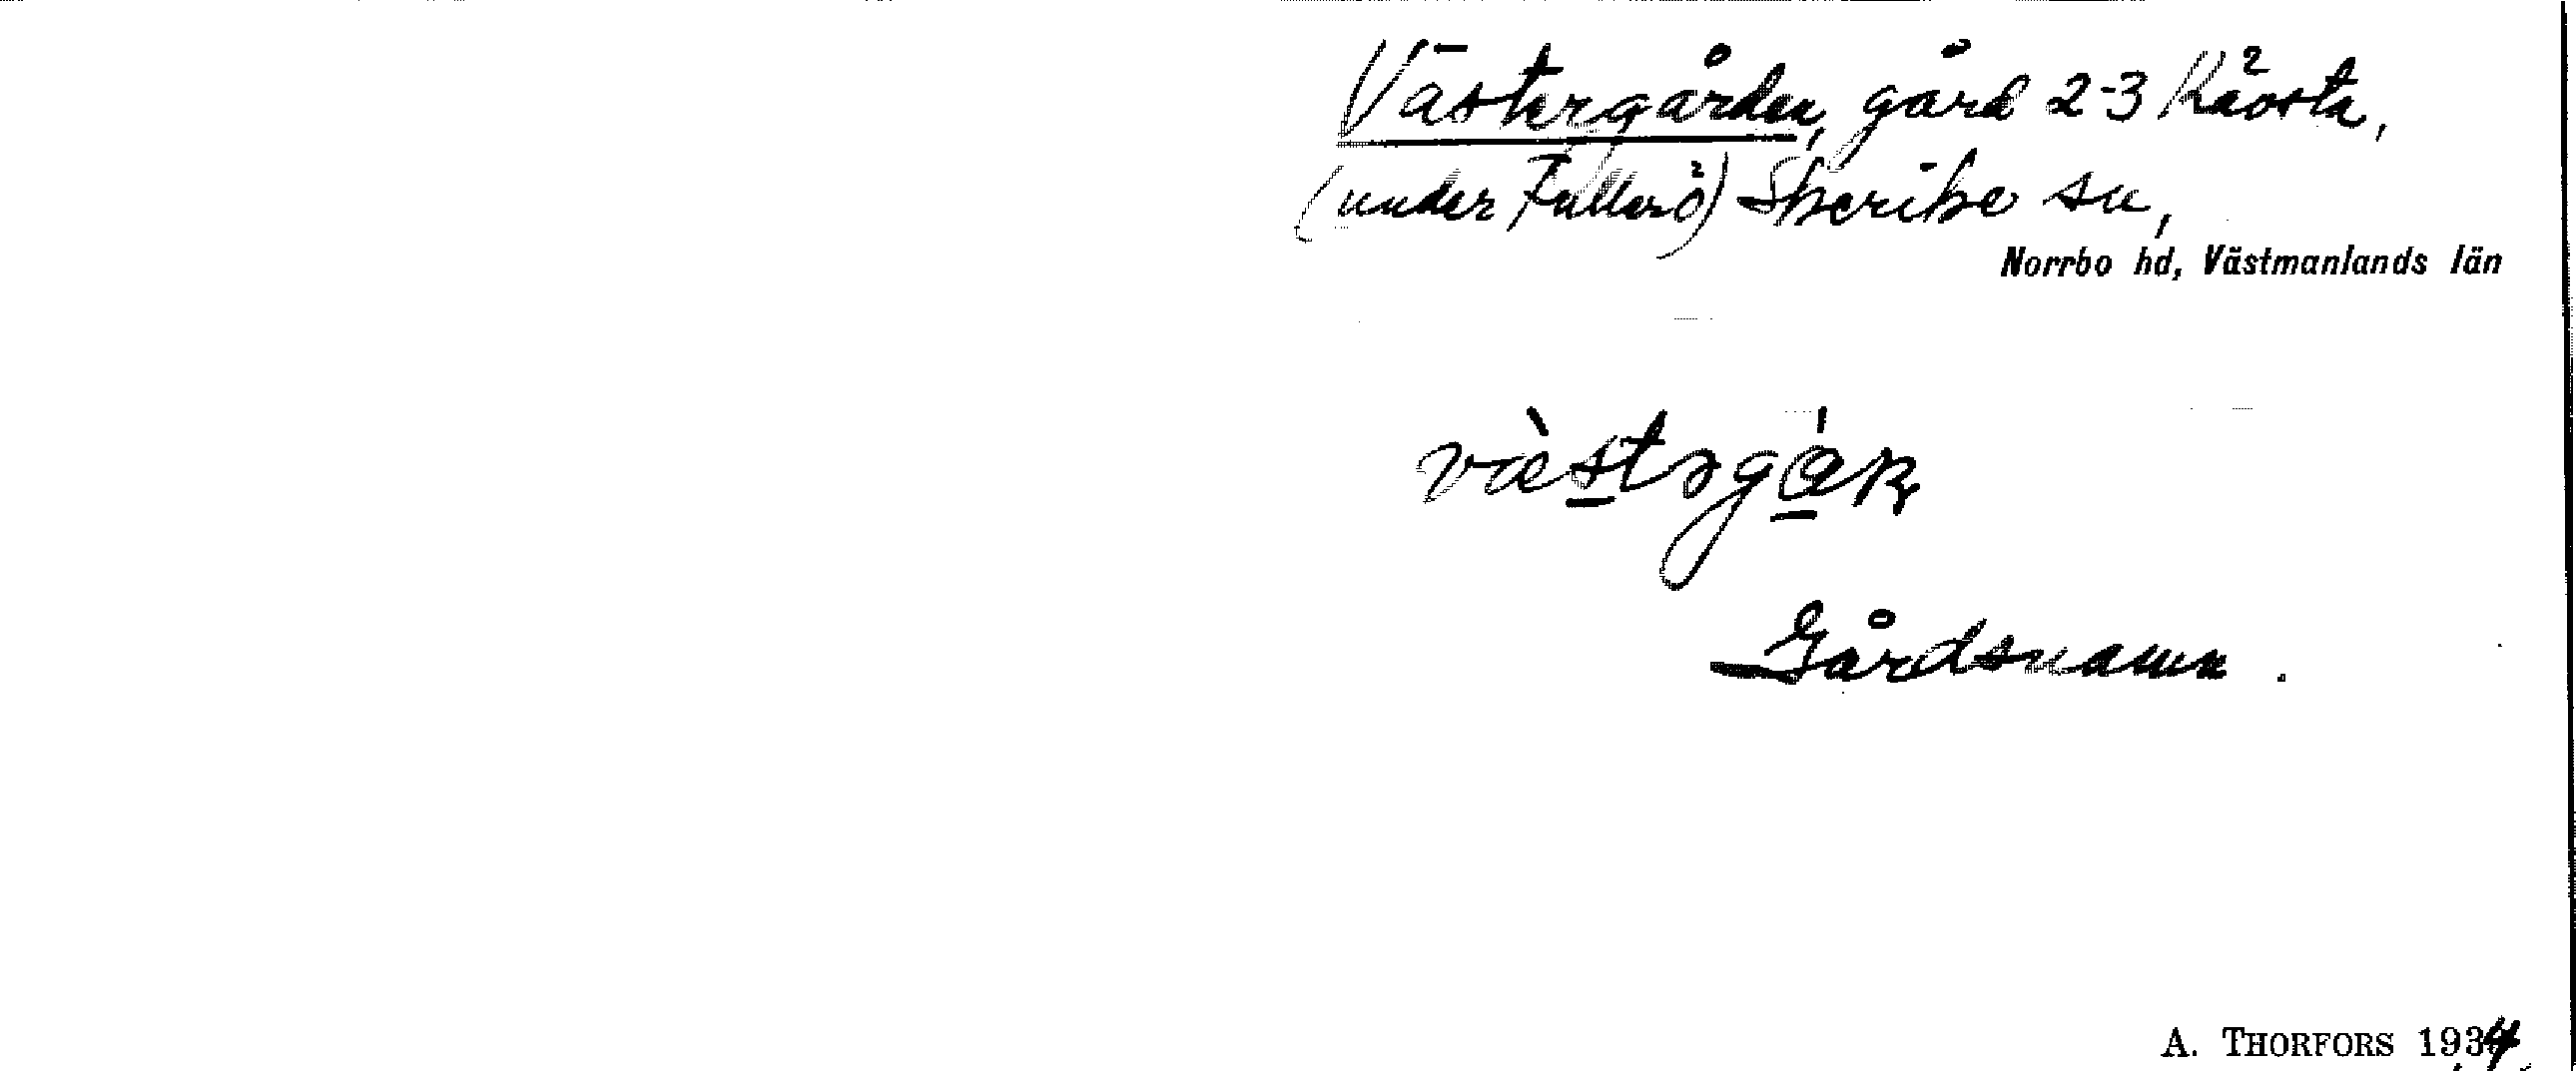 Västergården, gård 2-3 Råösta,
(under Fullerö) Skerike sn,
Norrbo hd, Västmanlands län
Gårdsnamn.
A. THORFORS 1934